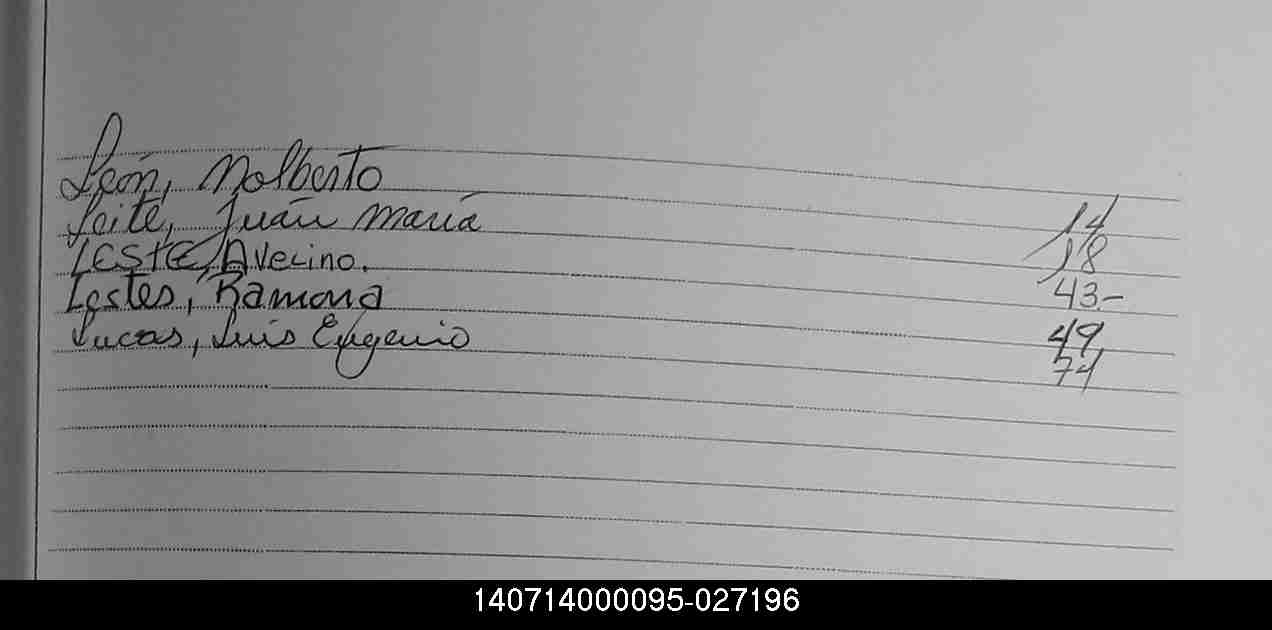 León, Nolberto 14
Leite, Juan María 18
LESTE, Avelino. 43.-
Lestes, Ramona 49
Lucas, Luis Eugenio 74
140714000095-027196